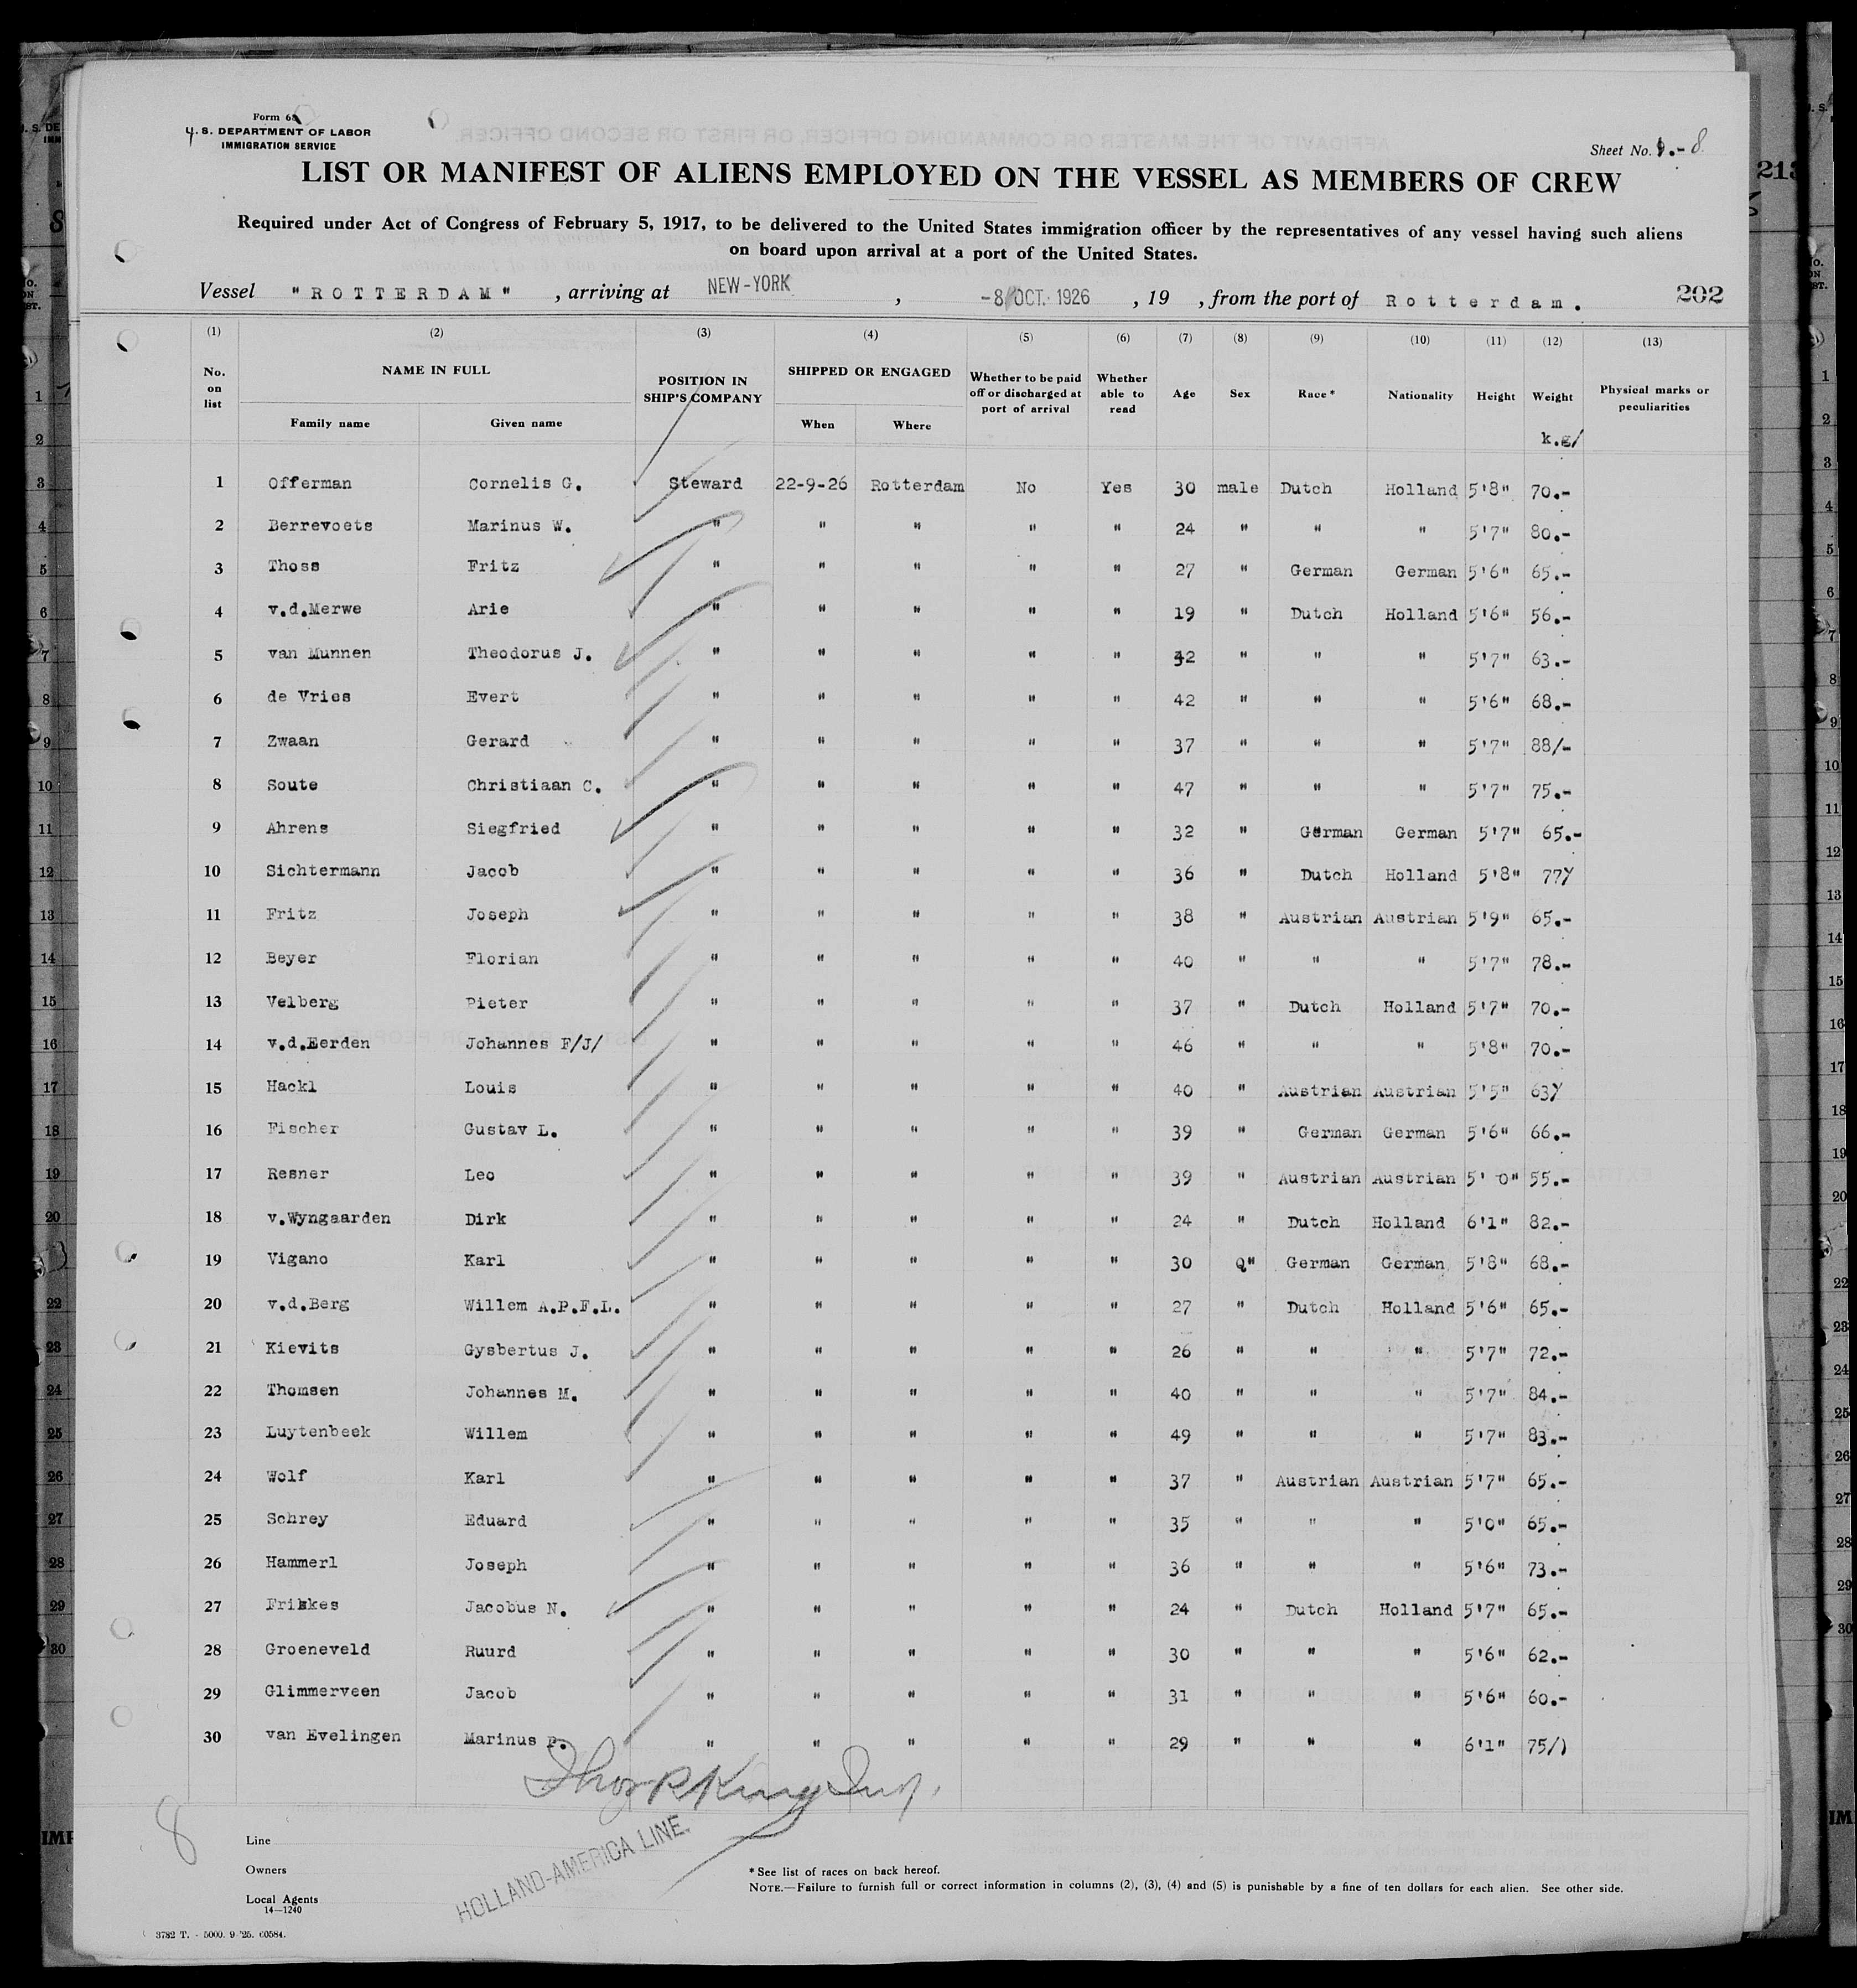 Form 68
U. S. DEPARTMENT OF LABOR
IMMIGRATION SERVICE
Sheet No. 8
LIST OR MANIFEST OF ALIENS EMPLOYED ON THE VESSEL AS MEMBERS OF CREW
Required under Act of Congress of February 5, 1917, to be delivered to the United States immigration officer by the representatives of any vessel having such aliens
on board upon arrival at a port of the United States.
Vessel "ROTTERDAM" , arriving at NEW-YORK , -8 OCT. 1926 , 19 , from the port of Rotterdam. 202
(1) (2) (3) (4) (5) (6) (7) (8) (9) (10) (11) (12) (13)
No. on list NAME IN FULL Family name Given name POSITION IN SHIP'S COMPANY SHIPPED OR ENGAGED When Where Whether to be paid off or discharged at port of arrival Whether able to read Age Sex Race* Nationality Height Weight Physical marks or peculiarities
k.g/
1 Offerman Cornelis G. Steward 22-9-26 Rotterdam No Yes 30 male Dutch Holland 5'8" 70.-
2 Berrevoets Marinus W. " " " " " 24 " " " 5'7" 80.-
3 Thoss Fritz " " " " " 27 " German German 5'6" 65.-
4 v.d.Merwe Arie " " " " " 19 " Dutch Holland 5'6" 56.-
5 van Munnen Theodorus J. " " " " " 32 " " " 5'7" 63.-
6 de Vries Evert " " " " " 42 " " " 5'6" 68.-
7 Zwaan Gerard " " " " " 37 " " " 5'7" 88/-
8 Soute Christiaan C. " " " " " 47 " " " 5'7" 75.-
9 Ahrens Siegfried " " " " " 32 " German German 5'7" 65.-
10 Sichtermann Jacob " " " " " 36 " Dutch Holland 5'8" 77
11 Fritz Joseph " " " " " 38 " Austrian Austrian 5'9" 65.-
12 Beyer Florian " " " " " 40 " " " 5'7" 78.-
13 Velberg Pieter " " " " " 37 " Dutch Holland 5'7" 70.-
14 v.d.Eerden Johannes F/J/ " " " " " 46 " " " 5'8" 70.-
15 Hackl Louis " " " " " 40 " Austrian Austrian 5'5" 63
16 Fischer Gustav L. " " " " " 39 " German German 5'6" 66.-
17 Resner Leo " " " " " 39 " Austrian Austrian 5' 0" 55.-
18 v.Wyngaarden Dirk " " " " " 24 " Dutch Holland 6'1" 82.-
19 Vigano Karl " " " " " 30 " German German 5'8" 68.-
20 v.d.Berg Willem A.P.F.L. " " " " " 27 " Dutch Holland 5'6" 65.-
21 Kievits Gysbertus J. " " " " " 26 " " " 5'7" 72.-
22 Thomsen Johannes M. " " " " " 40 " " " 5'7" 84.-
23 Luytenbeek Willem " " " " " 49 " " " 5'7" 83.-
24 Wolf Karl " " " " " 37 " Austrian Austrian 5'7" 65.-
25 Schrey Eduard " " " " " 35 " " " 5'0" 65.-
26 Hammerl Joseph " " " " " 36 " " " 5'6" 73.-
27 Frikkes Jacobus N. " " " " " 24 " Dutch Holland 5'7" 65.-
28 Groeneveld Ruurd " " " " " 30 " " " 5'6" 62.-
29 Glimmerveen Jacob " " " " " 31 " " " 5'6" 60.-
30 van Evelingen Marinus P. " " " " " 29 " " " 6'1" 75/
8
Line
Owners
Local Agents
14—1240
HOLLAND-AMERICA LINE.
* See list of races on back hereof.
NOTE.—Failure to furnish full or correct information in columns (2), (3), (4) and (5) is punishable by a fine of ten dollars for each alien. See other side.
3782 T. - 5000. 9-'25. 60584.